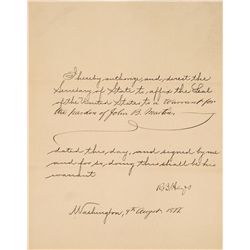 I hereby authorize, and, direct the
Secretary of State to, affix the Seal
of the United States to a Warrant for
the pardon of John B.
dated this, day, and signed by me
and for so, doing this shall be his
warrant
R B Hayes
Washington, 9th August, 187